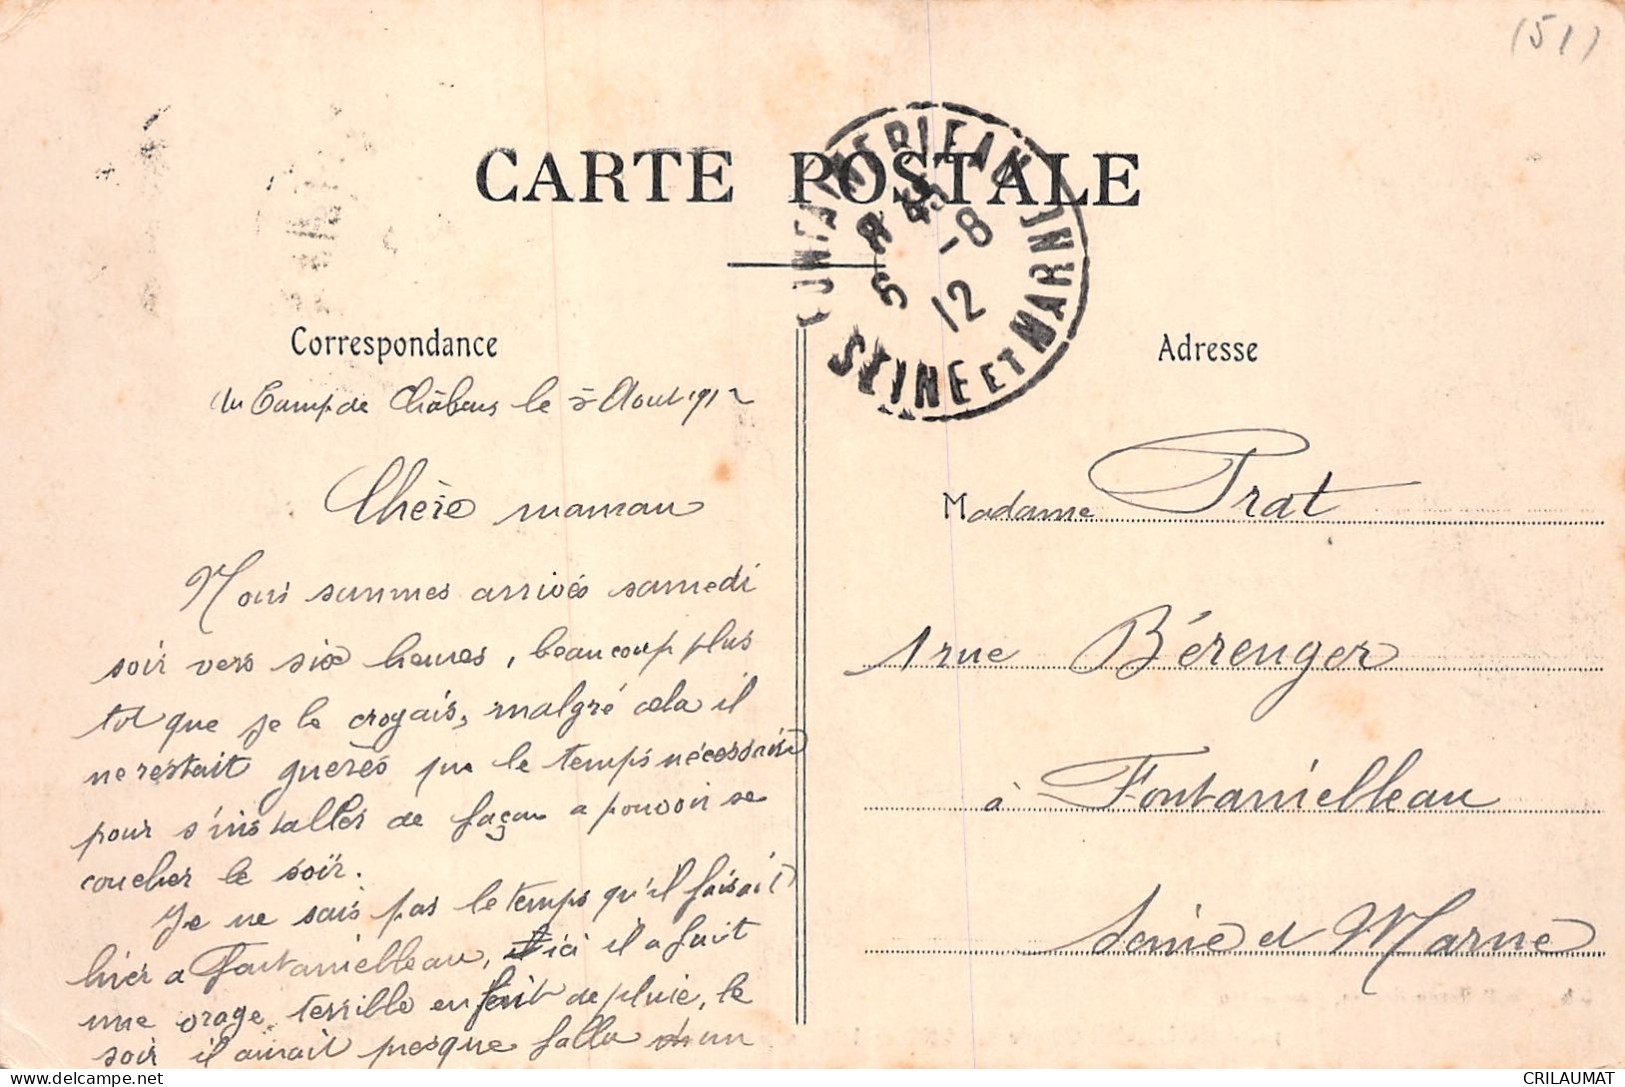 (51)
CARTE POSTALE
FONTAINEBLEAU
SEINE ET MARNE
5 -8
12
Correspondance
Adresse
du Camp de Châlons le 5 Aout 1912
Chère maman
Nous sommes arrivés samedi
soir vers six heures, beaucoup plus
tot que je le croyais, malgré cela il
ne restait guères que le temps nécessaire
pour s'installer de façon a pouvoir se
coucher le soir.
Je ne sais pas le temps qu'il faisait
hier a Fontainebleau, ici il a fait
une orage terrible en fait de pluie, le
soir il aurait presque fallu un
Madame Prat
1 rue Bérenger
à Fontainebleau
Seine et Marne
CRILAUMAT